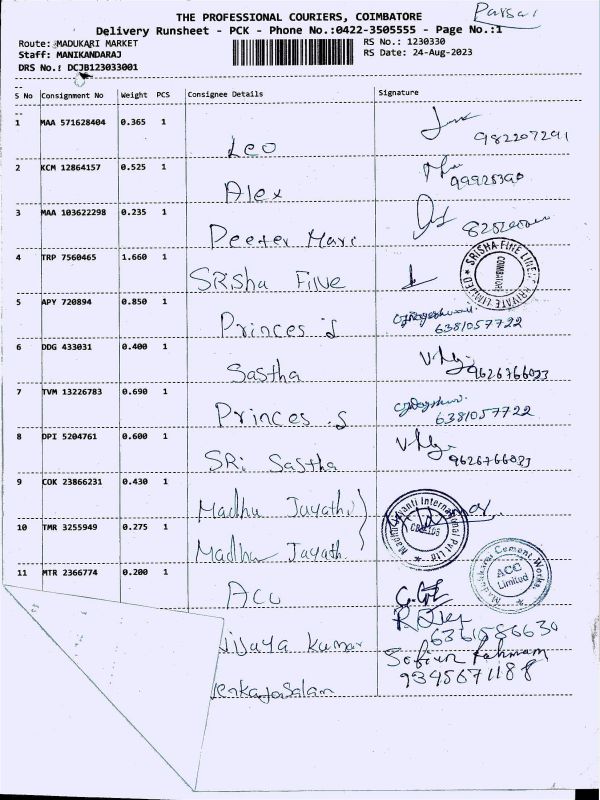 THE PROFESSIONAL COURIERS, COIMBATORE
Delivery Runsheet - PCK - Phone No.:0422-3505555 - Page No.:1
Route: MADUKARI MARKET RS No.: 1230330
Staff: MANIKANDARAJ RS Date: 24-Aug-2023
DRS No.: DCJB123033001
S No Consignment No Weight PCS Consignee Details Signature
1 MAA 571628404 0.365 1
Leo 982207291
2 KCM 12864157 0.525 1
Alex
3 MAA 103622298 0.235 1
Peeter Mari
4 TRP 7560465 1.660 1
SRISha FINe
SRISHA FINE LINEN PRIVATE LIMITED
COIMBATORE
5 APY 720894 0.850 1
Princes s 6381057722
6 DDG 433031 0.400 1
Sastha
7 TVM 13226783 0.690 1
Princes s 6381057722
8 DPI 5204761 0.600 1
SRi Sastha
9 COK 23866231 0.430 1
Madhu Jayathi
10 TMR 3255949 0.275 1
Madhu Jayath
11 MTR 2366774 0.200 1
ACC
Madukkarai Cement Works
ACC
Limited
Vijaya Kumar 6361586630
Venkatasalam 9345671188